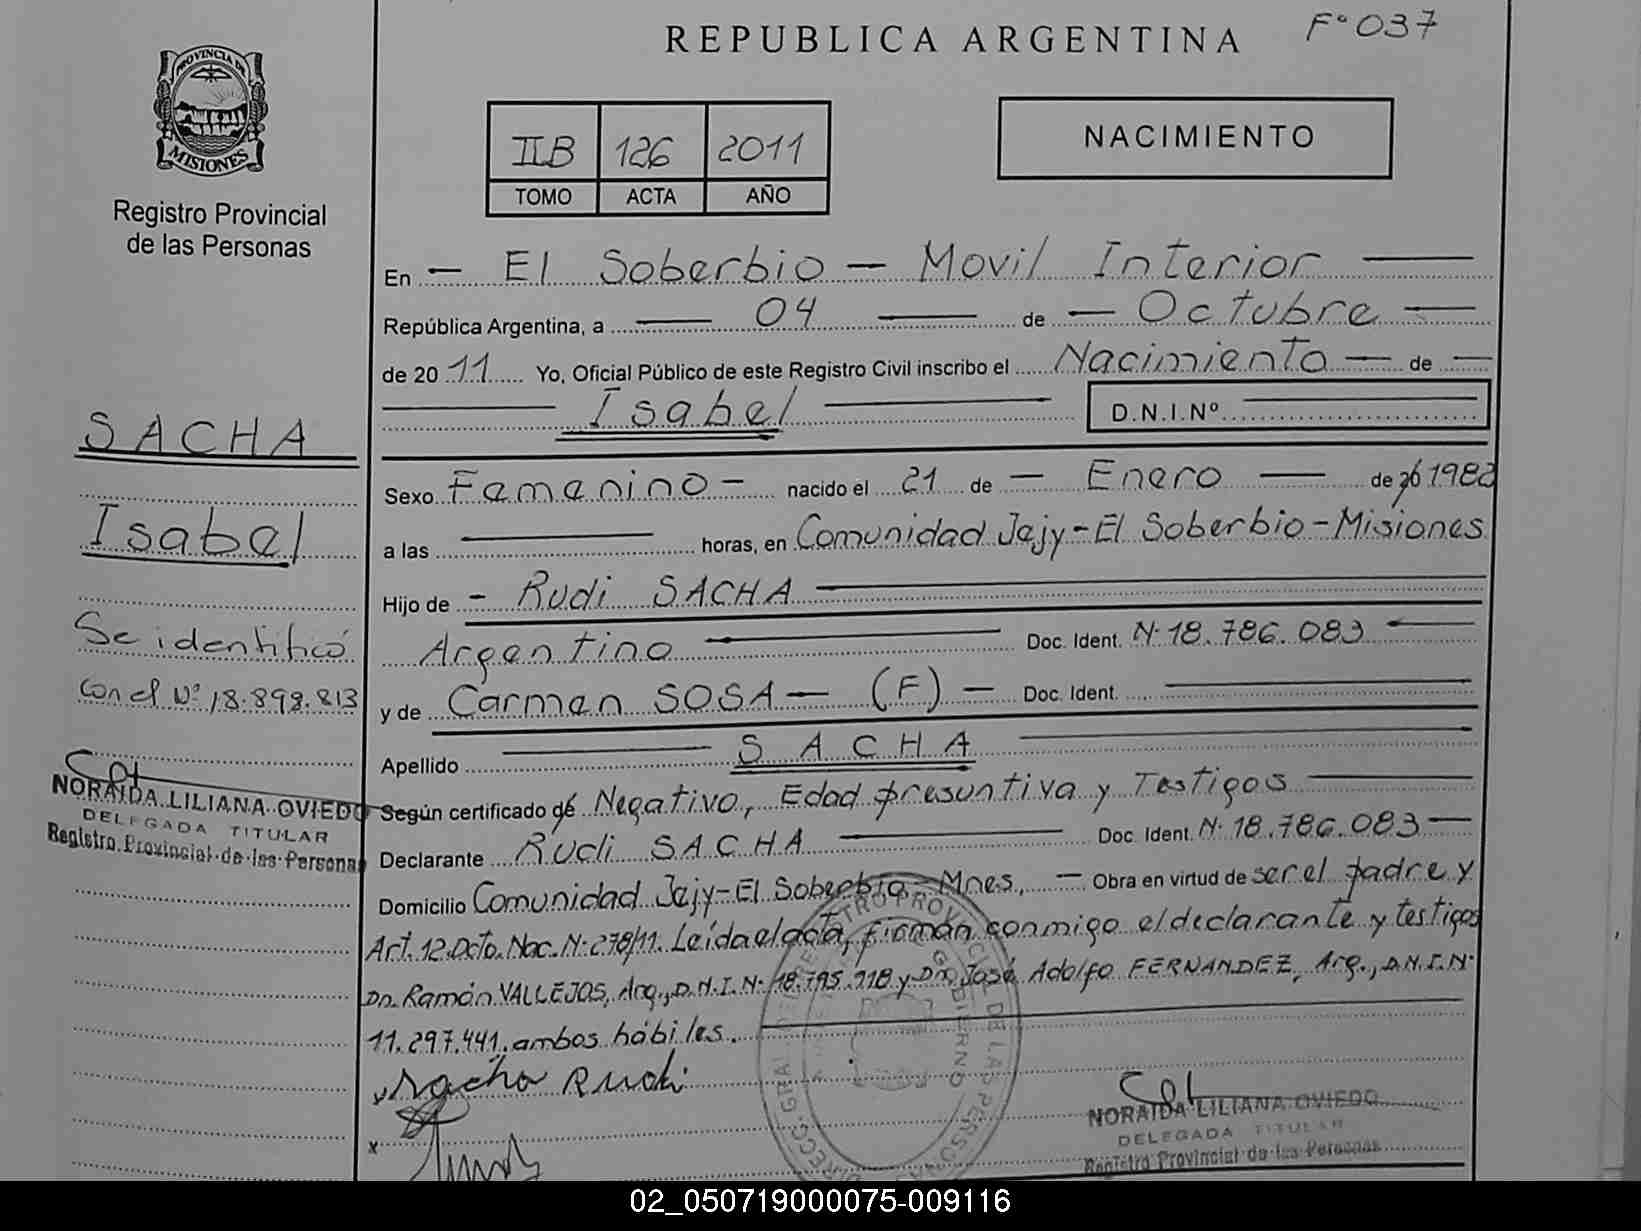 REPUBLICA ARGENTINA
F° 037
PROVINCIA DE
MISIONES
Registro Provincial
de las Personas
IIB 126 2011
TOMO ACTA AÑO
NACIMIENTO
En — El Soberbio — Movil Interior —
República Argentina, a — 04 — de — Octubre —
de 20 11 Yo, Oficial Público de este Registro Civil inscribo el Nacimiento — de —
— Isabel — D.N.I.Nº
SACHA
Isabel
Se identificó
con el Nº 18.898.813
NORAIDA LILIANA OVIEDO
DELEGADA TITULAR
Registro Provincial de las Personas
Sexo Femenino — nacido el 21 de — Enero — de 20 1982
a las — horas, en Comunidad Jejy-El Soberbio-Misiones
Hijo de — Rudi SACHA —
Argentino — Doc. Ident. Nº 18.786.083 —
y de Carmen SOSA — (F) — Doc. Ident. —
Apellido — SACHA —
Según certificado de Negativo, Edad presuntiva y Testigos —
Declarante Rudi SACHA — Doc. Ident. Nº 18.786.083 —
Domicilio Comunidad Jejy-El Soberbio-Mnes, — Obra en virtud de ser el padre y
Art. 12 Dcto. Nac. Nº 278/11. Leída el acta, firman conmigo el declarante y testigos
Dn. Ramón VALLEJOS, Arg., D.N.I. Nº 18.795.718 y Dn. José Adolfo FERNANDEZ, Arg., D.N.I.Nº
11.297.441. ambos hábiles.
Sacha Rudi
x
NORAIDA LILIANA OVIEDO
DELEGADA TITULAR
Registro Provincial de las Personas
02_050719000075-009116